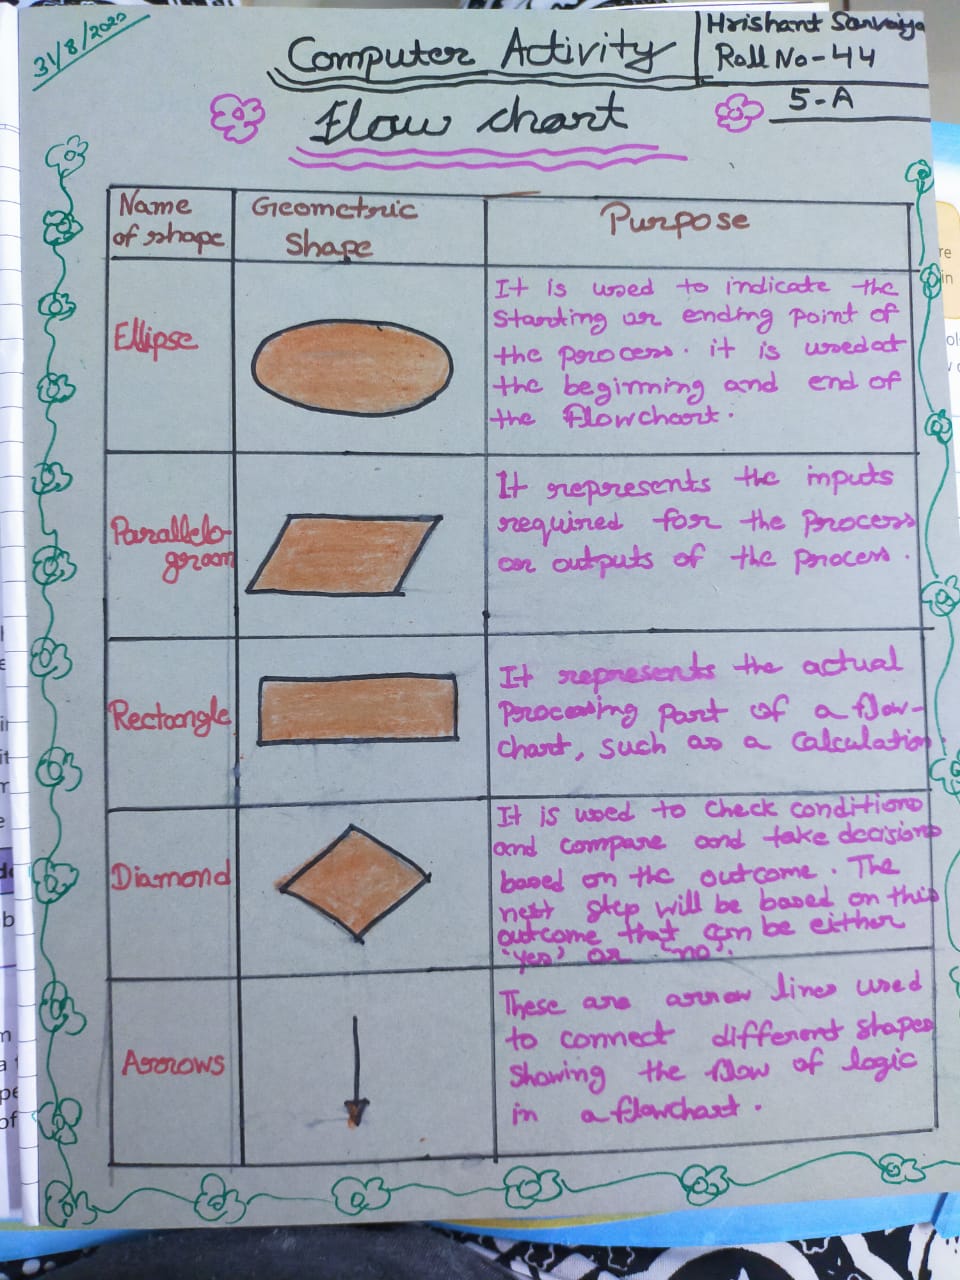 31/8/2020
Computer Activity
Hrishant Sarvaiya
Roll No-44
5-A
Flow chart
Name of shape
Geometric Shape
Purpose
Ellipse
It is used to indicate the
starting or ending point of
the process. it is used at
the beginning and end of
the flowchart.
Parallelo-
gram
It represents the inputs
required for the process
or outputs of the process.
Rectangle
It represents the actual
processing part of a flow-
chart, such as a calculation.
Diamond
It is used to check conditions
and compare and take decisions
based on the outcome. The
next step will be based on this
outcome that can be either
'yes' or 'no'.
Arrows
These are arrow lines used
to connect different shapes
showing the flow of logic
in a flowchart.